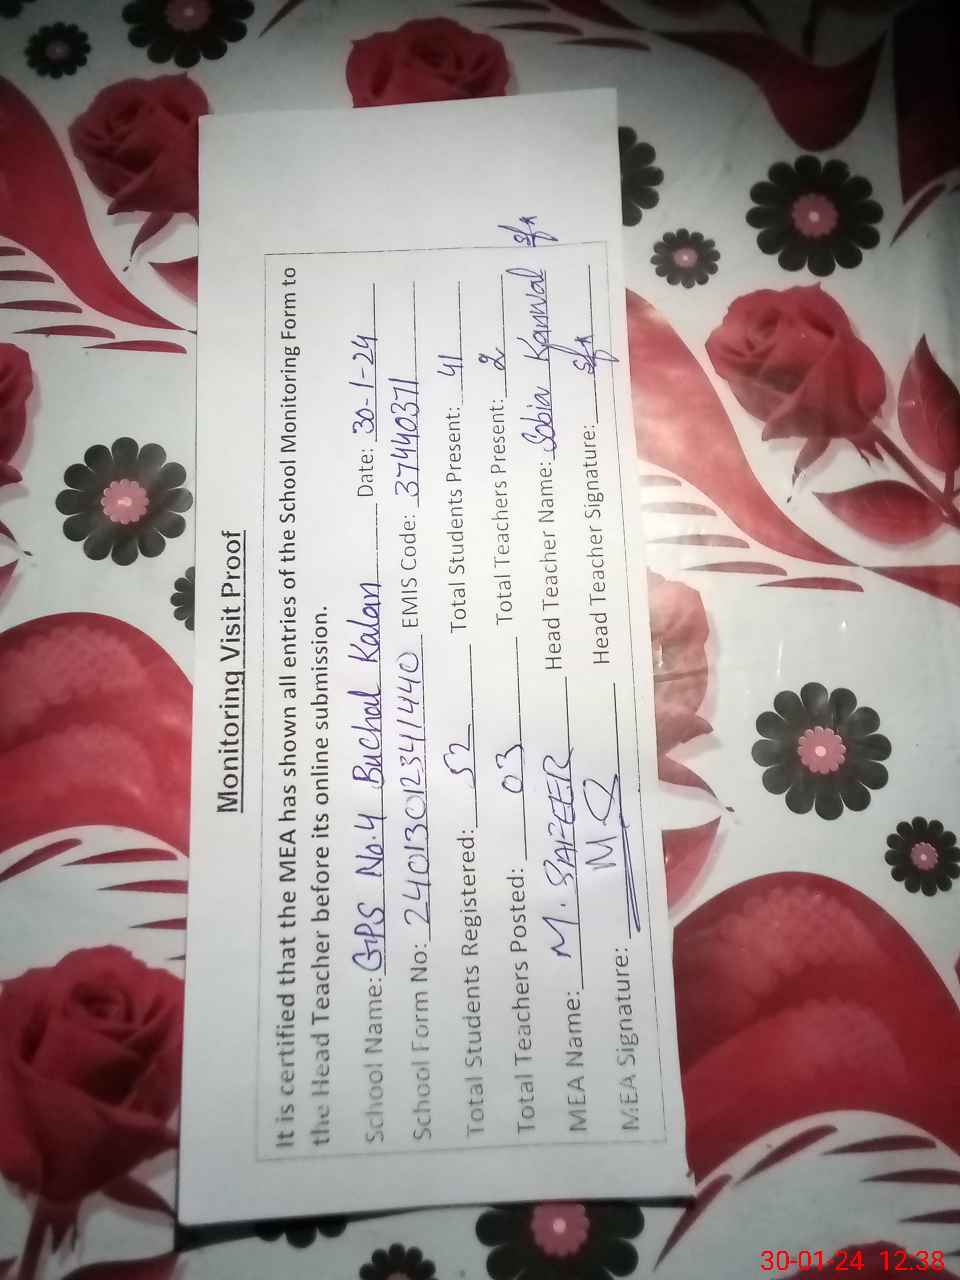 Monitoring Visit Proof
It is certified that the MEA has shown all entries of the School Monitoring Form to
the Head Teacher before its online submission.
School Name: GPS No.4 Buchal Kalan Date: 30-1-24
School Form No: 24013012341440 EMIS Code: 37440371
Total Students Registered: 52 Total Students Present: 41
Total Teachers Posted: 03 Total Teachers Present: 2
MEA Name: M. SAFEER Head Teacher Name: Sobia Kanwal
MEA Signature: Head Teacher Signature:
30-01-24 12:38